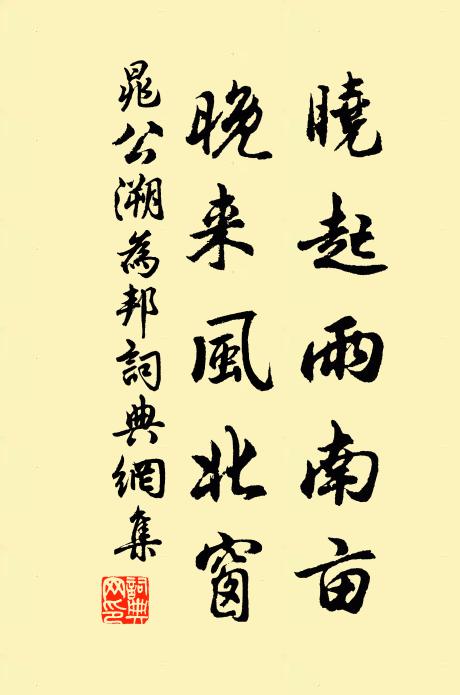 曉起雨南亩
晚来風北窗
晁公溯為邦詞典網集
詞典網印